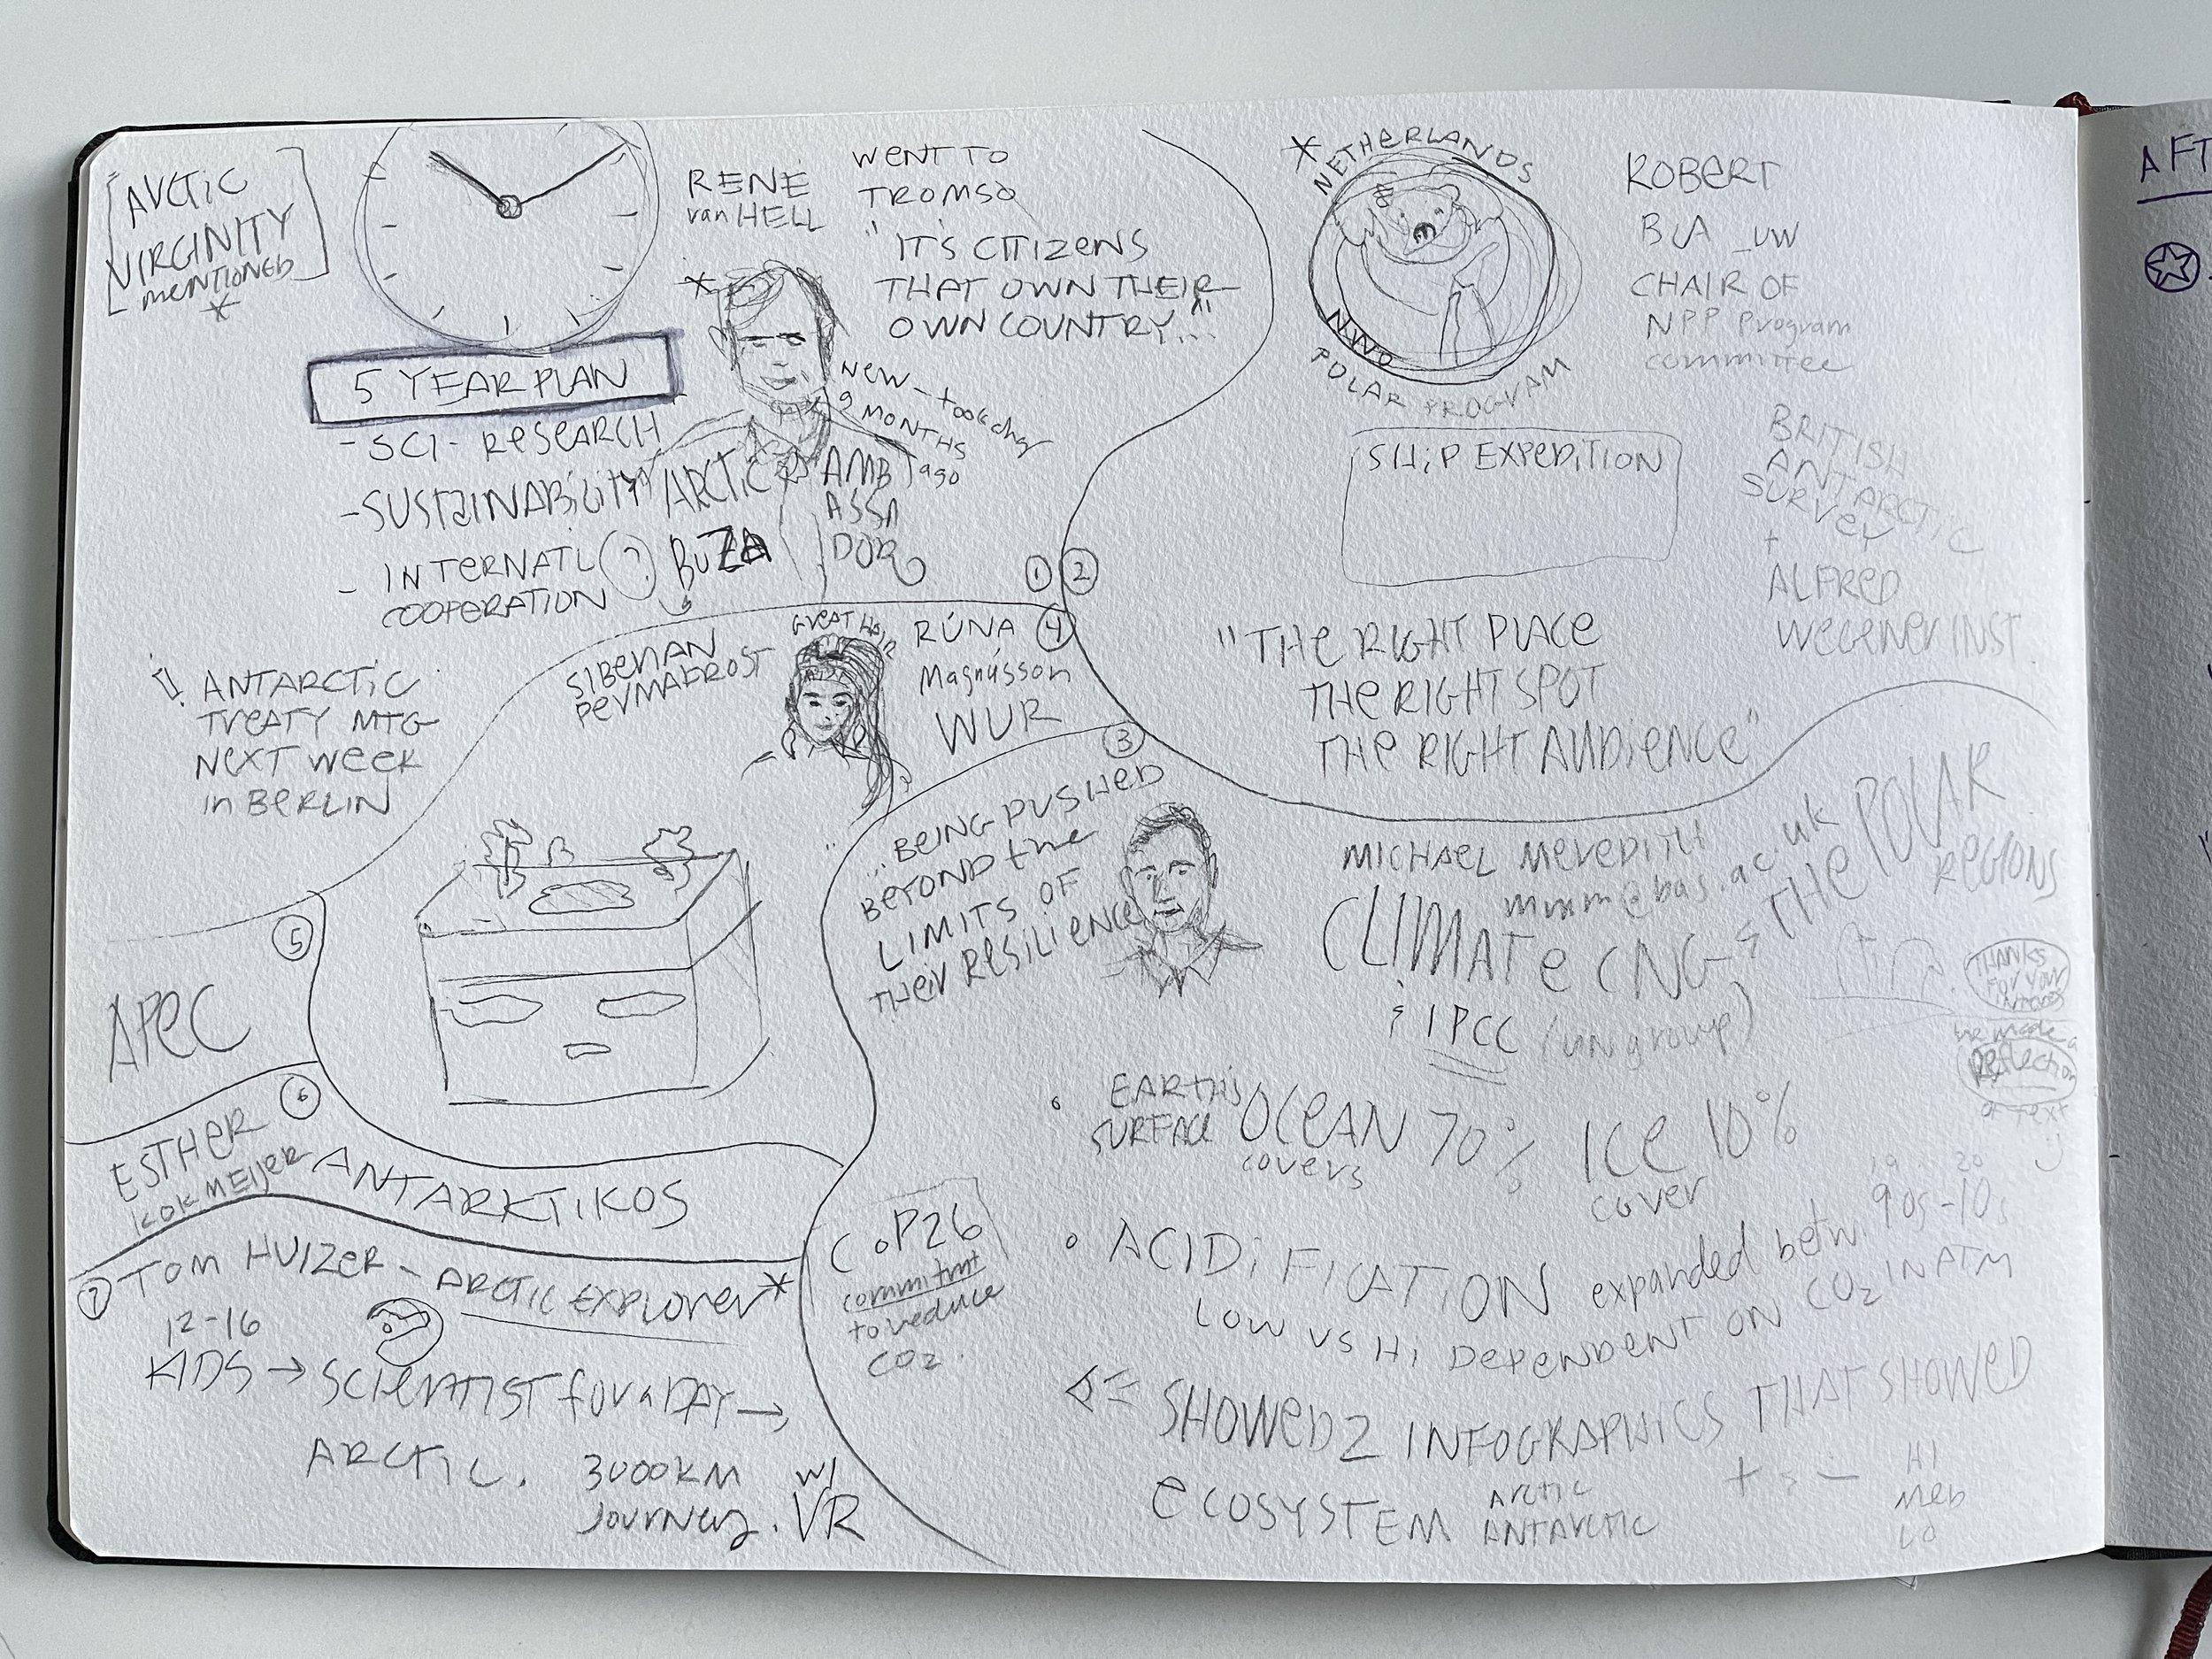 [ARCTIC
VIRGINITY
MENTIONED]
*
5 YEAR PLAN
- SCI- RESEARCH
- SUSTAINABILITY
- INTERNATL
COOPERATION
?
! ANTARCTIC
TREATY MTG
NEXT WEEK
in BERLIN
RENÉ
van HELL
*
WENT TO
TROMSO
"IT'S CITIZENS
THAT OWN THEIR
OWN COUNTRY..."
NEW - took chg
9 MONTHS
ago
ARCTIC AMB
ASSA
DOR
BUZA
1
2
* NETHERLANDS
NWO
POLAR PROGRAM
ROBERT
CHAIR OF
NPP Program
committee
SHIP EXPEDITION
BRITISH
ANTARCTIC
SURVEY
+
ALFRED
WEGENER INST.
"THE RIGHT PLACE
THE RIGHT SPOT
THE RIGHT AUDIENCE"
3
"...BEING PUSHED
BEYOND the
LIMITS OF
their RESILIENCE
MICHAEL MEREDITH
mmm@bas.ac.uk
CLIMATE CNG & THE POLAR
REGIONS
& IPCC (un group)
THANKS
FOR YOUR
we made a
Reflection
of text
• EARTH'S
SURFACE OCEAN 70% ICE 10%
covers
cover
• ACIDIFICATION expanded betw. 90s-10s
19 20
LOW VS HI DEPENDENT ON CO2 IN ATM
SHOWED 2 INFOGRAPHICS THAT SHOWED
ECOSYSTEM ARCTIC
ANTARCTIC
+ & -
HI
MED
LO
COP26
commitmt
to reduce
CO2.
4
SIBERIAN
PERMAFROST
GREAT HAIR
RÚNA
Magnússon
WUR
5
APEC
6
ESTHER
KOKMEIJER
ANTARKTIKOS
7
TOM HUIZER - ARCTIC EXPLORER*
12-16
KIDS → SCIENTIST for a DAY →
ARCTIC. 3000KM W/
Journey. VR
AFT